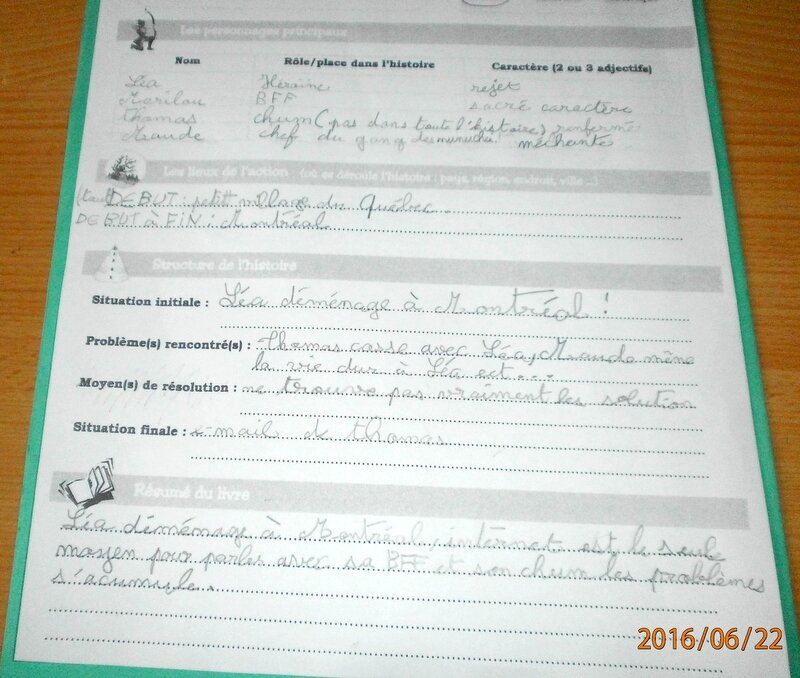 Les personnages principaux
Nom Rôle/place dans l'histoire Caractère (2 ou 3 adjectifs)
Léa Héroine rejet
Marilou BFF sacré caractère
Thomas chum (pas dans toute l'histoire) renfermé
Maude chef du gang des méchante
Les lieux de l'action (où se déroule l'histoire : pays, région, endroit, ville...)
DEBUT : petit village du Québec.
DEBUT à FIN : Montréal
Structure de l'histoire
Situation initiale : Léa déménage à Montréal !
Problème(s) rencontré(s) : Thomas casse avec Léa, Maude mène
la vie dur à Léa ect...
Moyen(s) de résolution : ne trouve pas vraiment les solution
Situation finale : e-mails d Thomas
Résumé du livre
Léa déménage à Montréal, internet est le seule
moyen pour parler avec sa BFF et son chum les problèmes
s'acumule.
2016/06/22